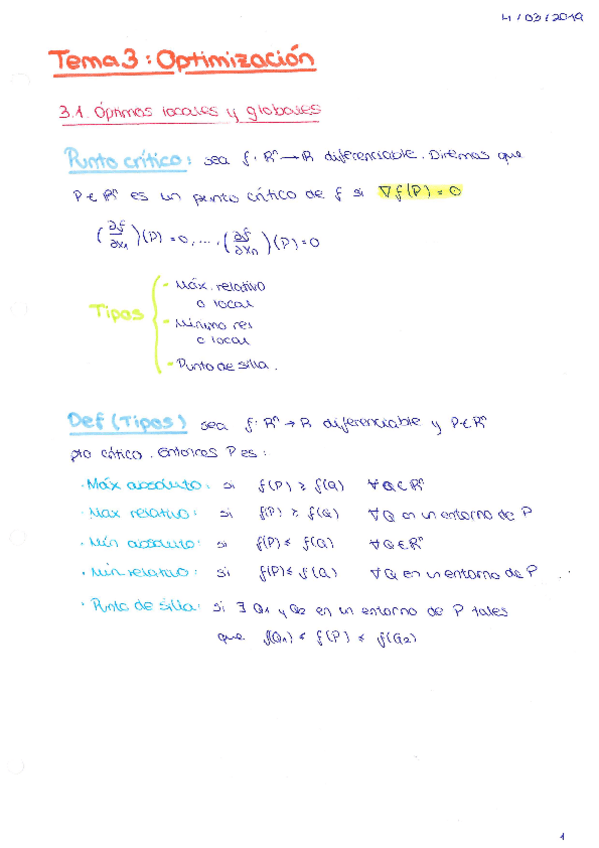 4/03/2019
Tema 3: Optimización
3.1. Óptimos locales y globales
Punto crítico: sea f: Rⁿ → R diferenciable. Diremos que
P ∈ Rⁿ es un punto crítico de f si ∇f(P) = 0
(∂f/∂x₁)(P) = 0, ..., (∂f/∂xₙ)(P) = 0
Tipos { - Máx. relativo
o local
- Mínimo rel
o local
- Punto de silla.
Def (Tipos) sea f: Rⁿ → R diferenciable y P ∈ Rⁿ
pto crítico. Entonces P es:
· Máx absoluto: si f(P) ≥ f(Q) ∀Q ∈ Rⁿ
· Max relativo: si f(P) ≥ f(Q) ∀Q en un entorno de P
· Mín absoluto: si f(P) ≤ f(Q) ∀Q ∈ Rⁿ
· Mín relativo: si f(P) ≤ f(Q) ∀Q en un entorno de P
· Punto de silla: si ∃ Q₁ y Q₂ en un entorno de P tales
que f(Q₁) ≤ f(P) ≤ f(Q₂)
1